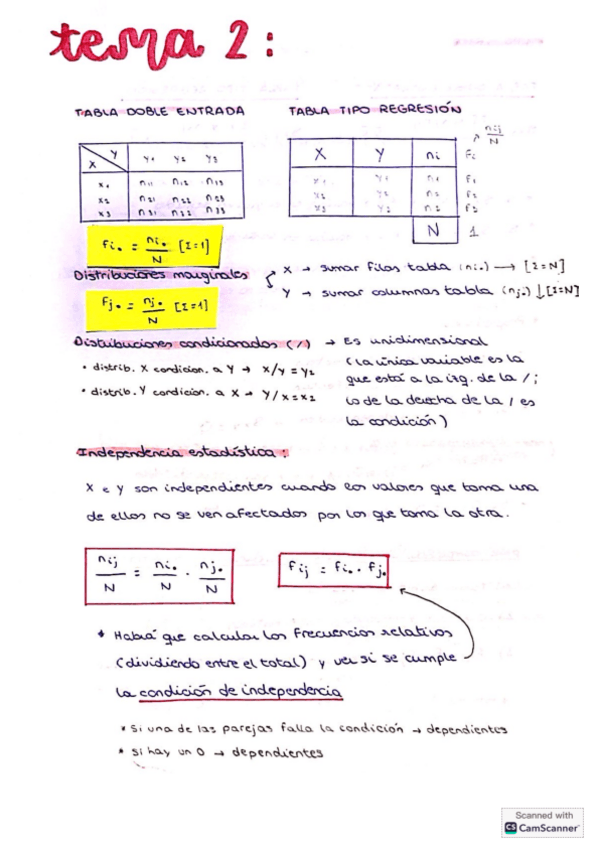 tema 2:
TABLA DOBLE ENTRADA
TABLA TIPO REGRESIÓN
nij/N
X Y y1 y2 y3
x1 n11 n12 n13
x2 n21 n22 n23
x3 n31 n32 n33
X Y ni fi
x1 y1 n1 f1
x2 y2 n2 f2
x3 y3 f3
N 1
fi• = ni•/N [Σ=1]
Distribuciones marginales
X → sumar filas tabla (ni•) → [Σ=N]
Y → sumar columnas tabla (nj•) ↓ [Σ=N]
fj• = nj•/N [Σ=1]
Distribuciones condicionados (/) → Es unidimensional
(la única variable es la
que está a la izq. de la /;
lo de la derecha de la / es
la condición)
• distrib. X condicion. a Y → x/y=y2
• distrib. Y condicion. a X → Y/x=x2
Independencia estadística:
X e Y son independientes cuando los valores que toma una
de ellos no se ven afectados por los que toma la otra.
nij/N = ni•/N · nj•/N
fij = fi• · fj•
* Habrá que calcular los frecuencias relativos
(dividiendo entre el total) y ver si se cumple
la condición de independencia
* Si una de las parejas falla la condición → dependientes
* Si hay un 0 → dependientes
Scanned with
CS CamScanner